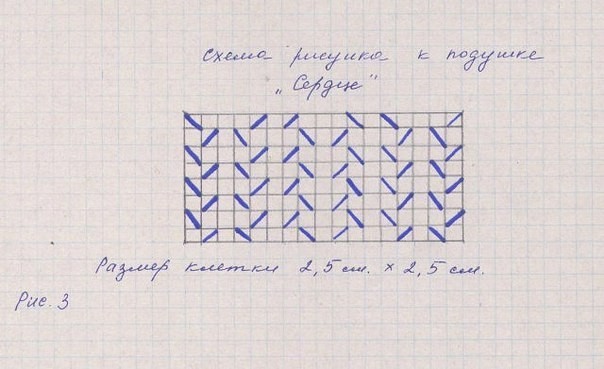 Схема рисунка к подушке
„Сердце"
Размер клетки 2,5 см. × 2,5 см.
Рис. 3